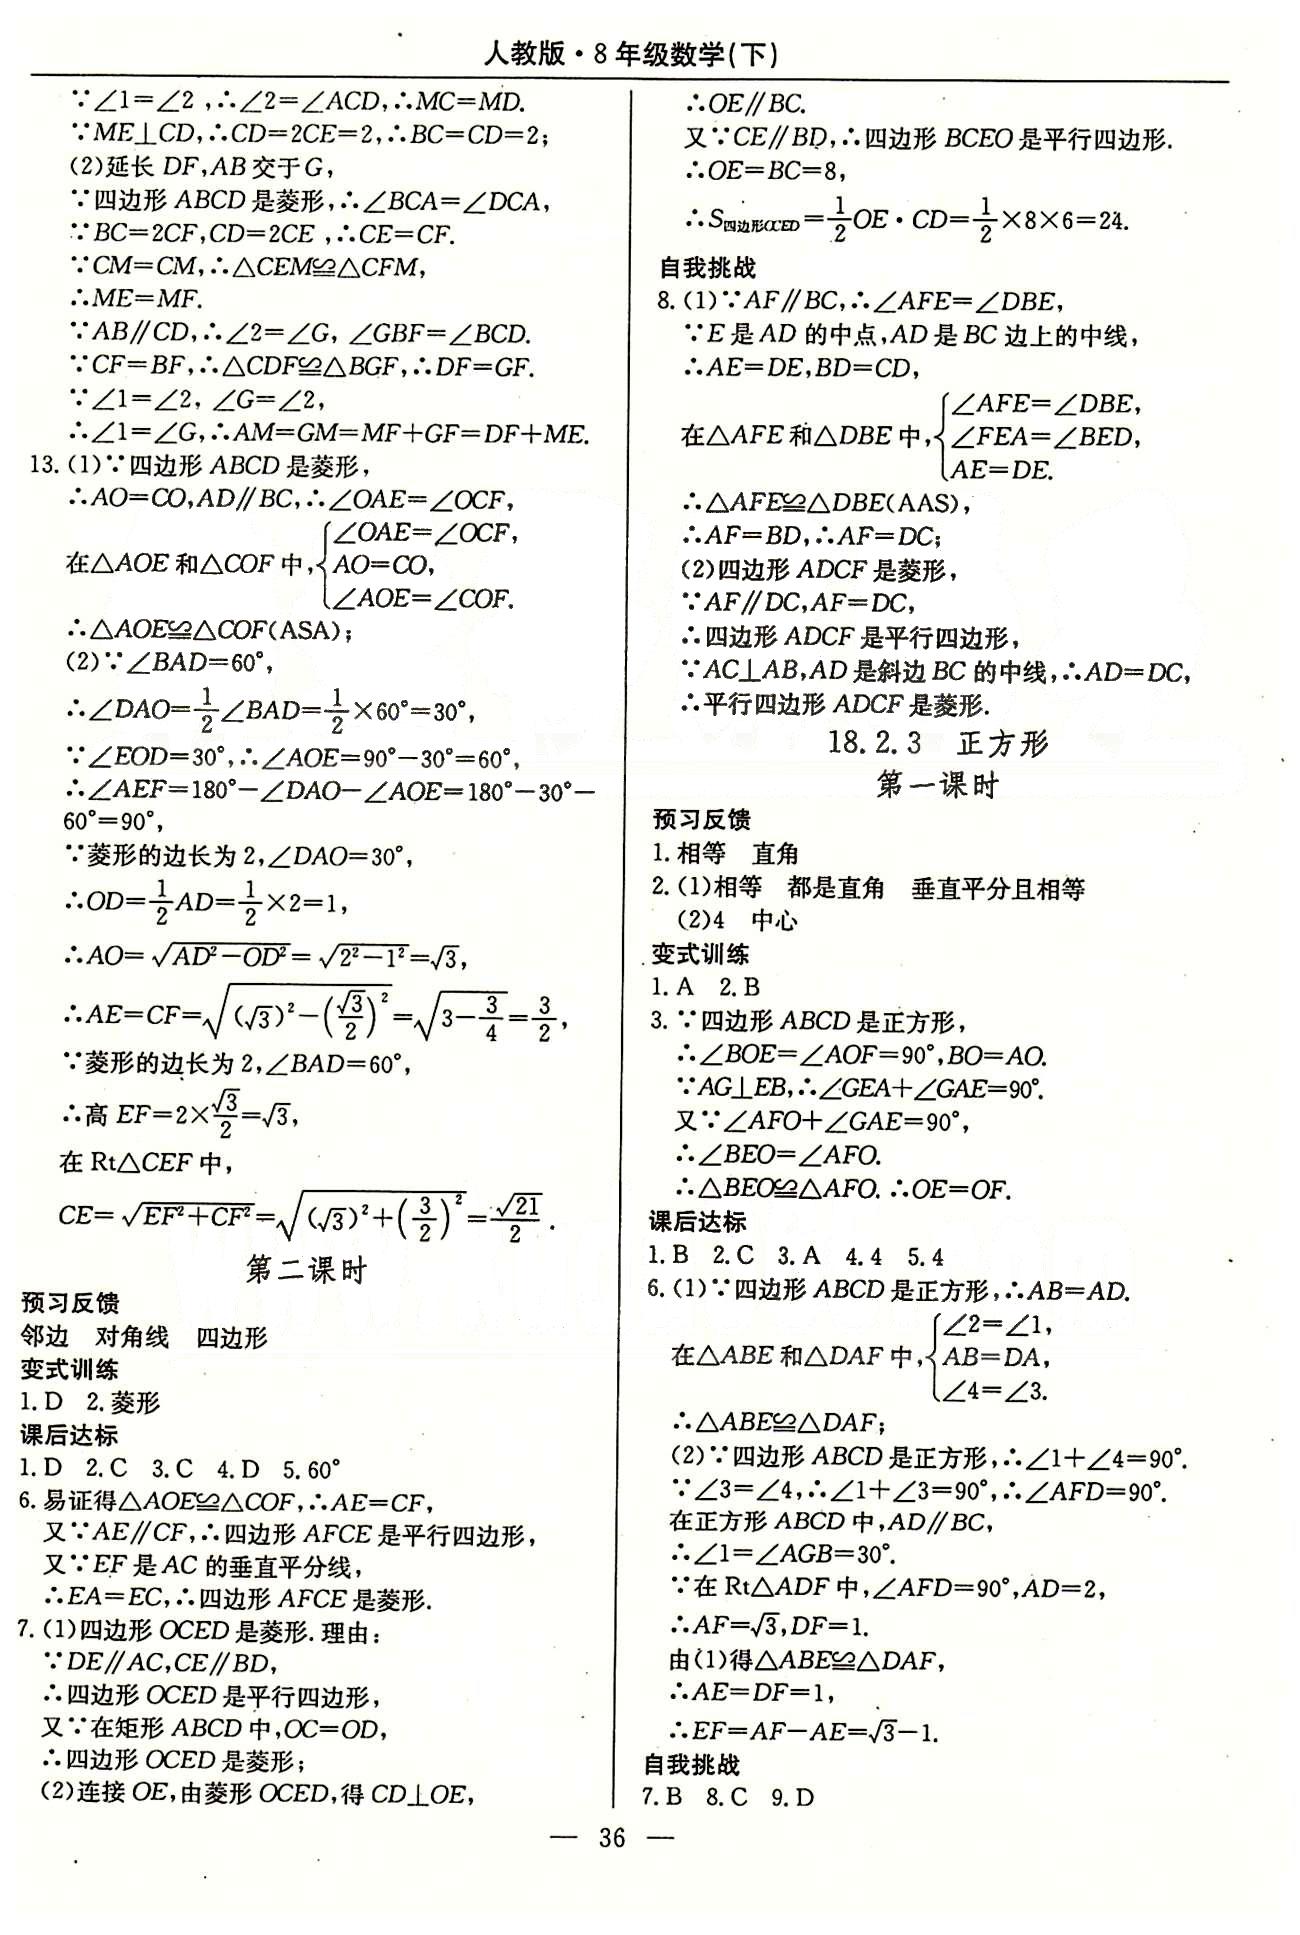 人教版·8年级数学(下)
∵∠1=∠2,∴∠2=∠ACD,∴MC=MD.
∵ME⊥CD,∴CD=2CE=2,∴BC=CD=2;
(2)延长DF,AB交于G,
∵四边形ABCD是菱形,∴∠BCA=∠DCA,
∵BC=2CF,CD=2CE,∴CE=CF.
∵CM=CM,∴△CEM≌△CFM,
∴ME=MF.
∵AB∥CD,∴∠2=∠G,∠GBF=∠BCD.
∵CF=BF,∴△CDF≌△BGF,∴DF=GF.
∵∠1=∠2,∠G=∠2,
∴∠1=∠G,∴AM=GM=MF+GF=DF+ME.
13.(1)∵四边形ABCD是菱形,
∴AO=CO,AD∥BC,∴∠OAE=∠OCF,
在△AOE和△COF中,{∠OAE=∠OCF,
AO=CO,
∠AOE=∠COF.
∴△AOE≌△COF(ASA);
(2)∵∠BAD=60°,
∴∠DAO=1/2∠BAD=1/2×60°=30°,
∵∠EOD=30°,∴∠AOE=90°-30°=60°,
∴∠AEF=180°-∠DAO-∠AOE=180°-30°-
60°=90°,
∵菱形的边长为2,∠DAO=30°,
∴OD=1/2AD=1/2×2=1,
∴AO=√(AD²-OD²)=√(2²-1²)=√3,
∴AE=CF=√((√3)²-(√3/2)²)=√(3-3/4)=3/2,
∵菱形的边长为2,∠BAD=60°,
∴高EF=2×√3/2=√3,
在Rt△CEF中,
CE=√(EF²+CF²)=√((√3)²+(3/2)²)=√21/2.
第二课时
预习反馈
邻边 对角线 四边形
变式训练
1.D 2.菱形
课后达标
1.D 2.C 3.C 4.D 5.60°
6.易证得△AOE≌△COF,∴AE=CF,
又∵AE∥CF,∴四边形AFCE是平行四边形,
又∵EF是AC的垂直平分线,
∴EA=EC,∴四边形AFCE是菱形.
7.(1)四边形OCED是菱形.理由:
∵DE∥AC,CE∥BD,
∴四边形OCED是平行四边形,
又∵在矩形ABCD中,OC=OD,
∴四边形OCED是菱形;
(2)连接OE,由菱形OCED,得CD⊥OE,
∴OE∥BC.
又∵CE∥BD,∴四边形BCEO是平行四边形.
∴OE=BC=8,
∴S四边形OCED=1/2OE·CD=1/2×8×6=24.
自我挑战
8.(1)∵AF∥BC,∴∠AFE=∠DBE,
∵E是AD的中点,AD是BC边上的中线,
∴AE=DE,BD=CD,
在△AFE和△DBE中,{∠AFE=∠DBE,
∠FEA=∠BED,
AE=DE.
∴△AFE≌△DBE(AAS),
∴AF=BD,∴AF=DC;
(2)四边形ADCF是菱形,
∵AF∥DC,AF=DC,
∴四边形ADCF是平行四边形,
∵AC⊥AB,AD是斜边BC的中线,∴AD=DC,
∴平行四边形ADCF是菱形.
18.2.3 正方形
第一课时
预习反馈
1.相等 直角
2.(1)相等 都是直角 垂直平分且相等
(2)4 中心
变式训练
1.A 2.B
3.∵四边形ABCD是正方形,
∴∠BOE=∠AOF=90°,BO=AO.
∵AG⊥EB,∴∠GEA+∠GAE=90°.
又∵∠AFO+∠GAE=90°,
∴∠BEO=∠AFO.
∴△BEO≌△AFO.∴OE=OF.
课后达标
1.B 2.C 3.A 4.4 5.4
6.(1)∵四边形ABCD是正方形,∴AB=AD.
在△ABE和△DAF中,{∠2=∠1,
AB=DA,
∠4=∠3.
∴△ABE≌△DAF;
(2)∵四边形ABCD是正方形,∴∠1+∠4=90°.
∵∠3=∠4,∴∠1+∠3=90°,∴∠AFD=90°.
在正方形ABCD中,AD∥BC,
∴∠1=∠AGB=30°.
∵在Rt△ADF中,∠AFD=90°,AD=2,
∴AF=√3,DF=1.
由(1)得△ABE≌△DAF,
∴AE=DF=1,
∴EF=AF-AE=√3-1.
自我挑战
7.B 8.C 9.D
— 36 —